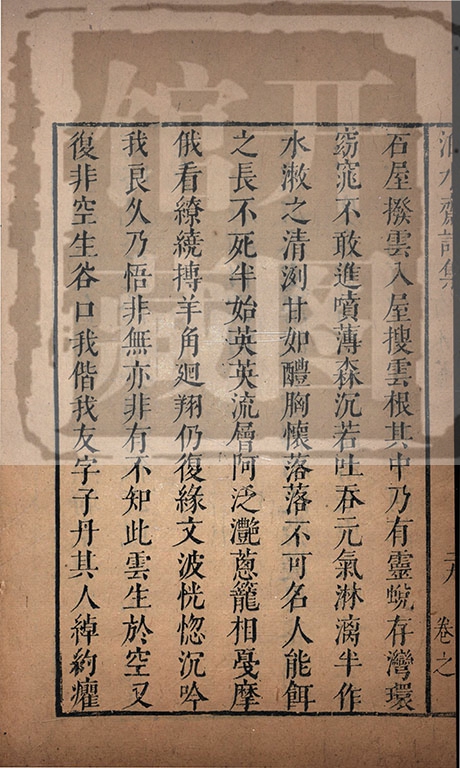 石屋撥雲入屋搜雲根其中乃有靈蛻存灣環
窈窕不敢進噴薄森沉若吐吞元氣淋漓半作
水漱之清洌甘如醴胸懷落落不可名人能餌
之長不死半始英英流層阿泛灧蔥籠相戞摩
俄看繚繞摶羊角廻翔仍復緣文波恍惚沉吟
我良久乃悟非無亦非有不知此雲生於空又
復非空生谷口我偕我友字子丹其人綽約癯
卷之